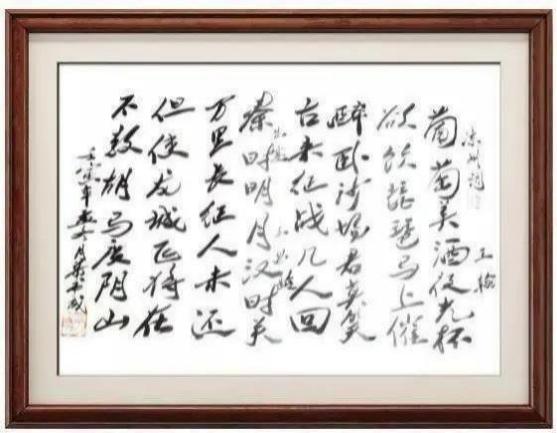 凉州词
王翰
葡萄美酒夜光杯
欲饮琵琶马上催
醉卧沙场君莫笑
古来征战几人回
出塞
秦时明月汉时关
万里长征人未还
但使龙城飞将在
不教胡马度阴山
壬寅年